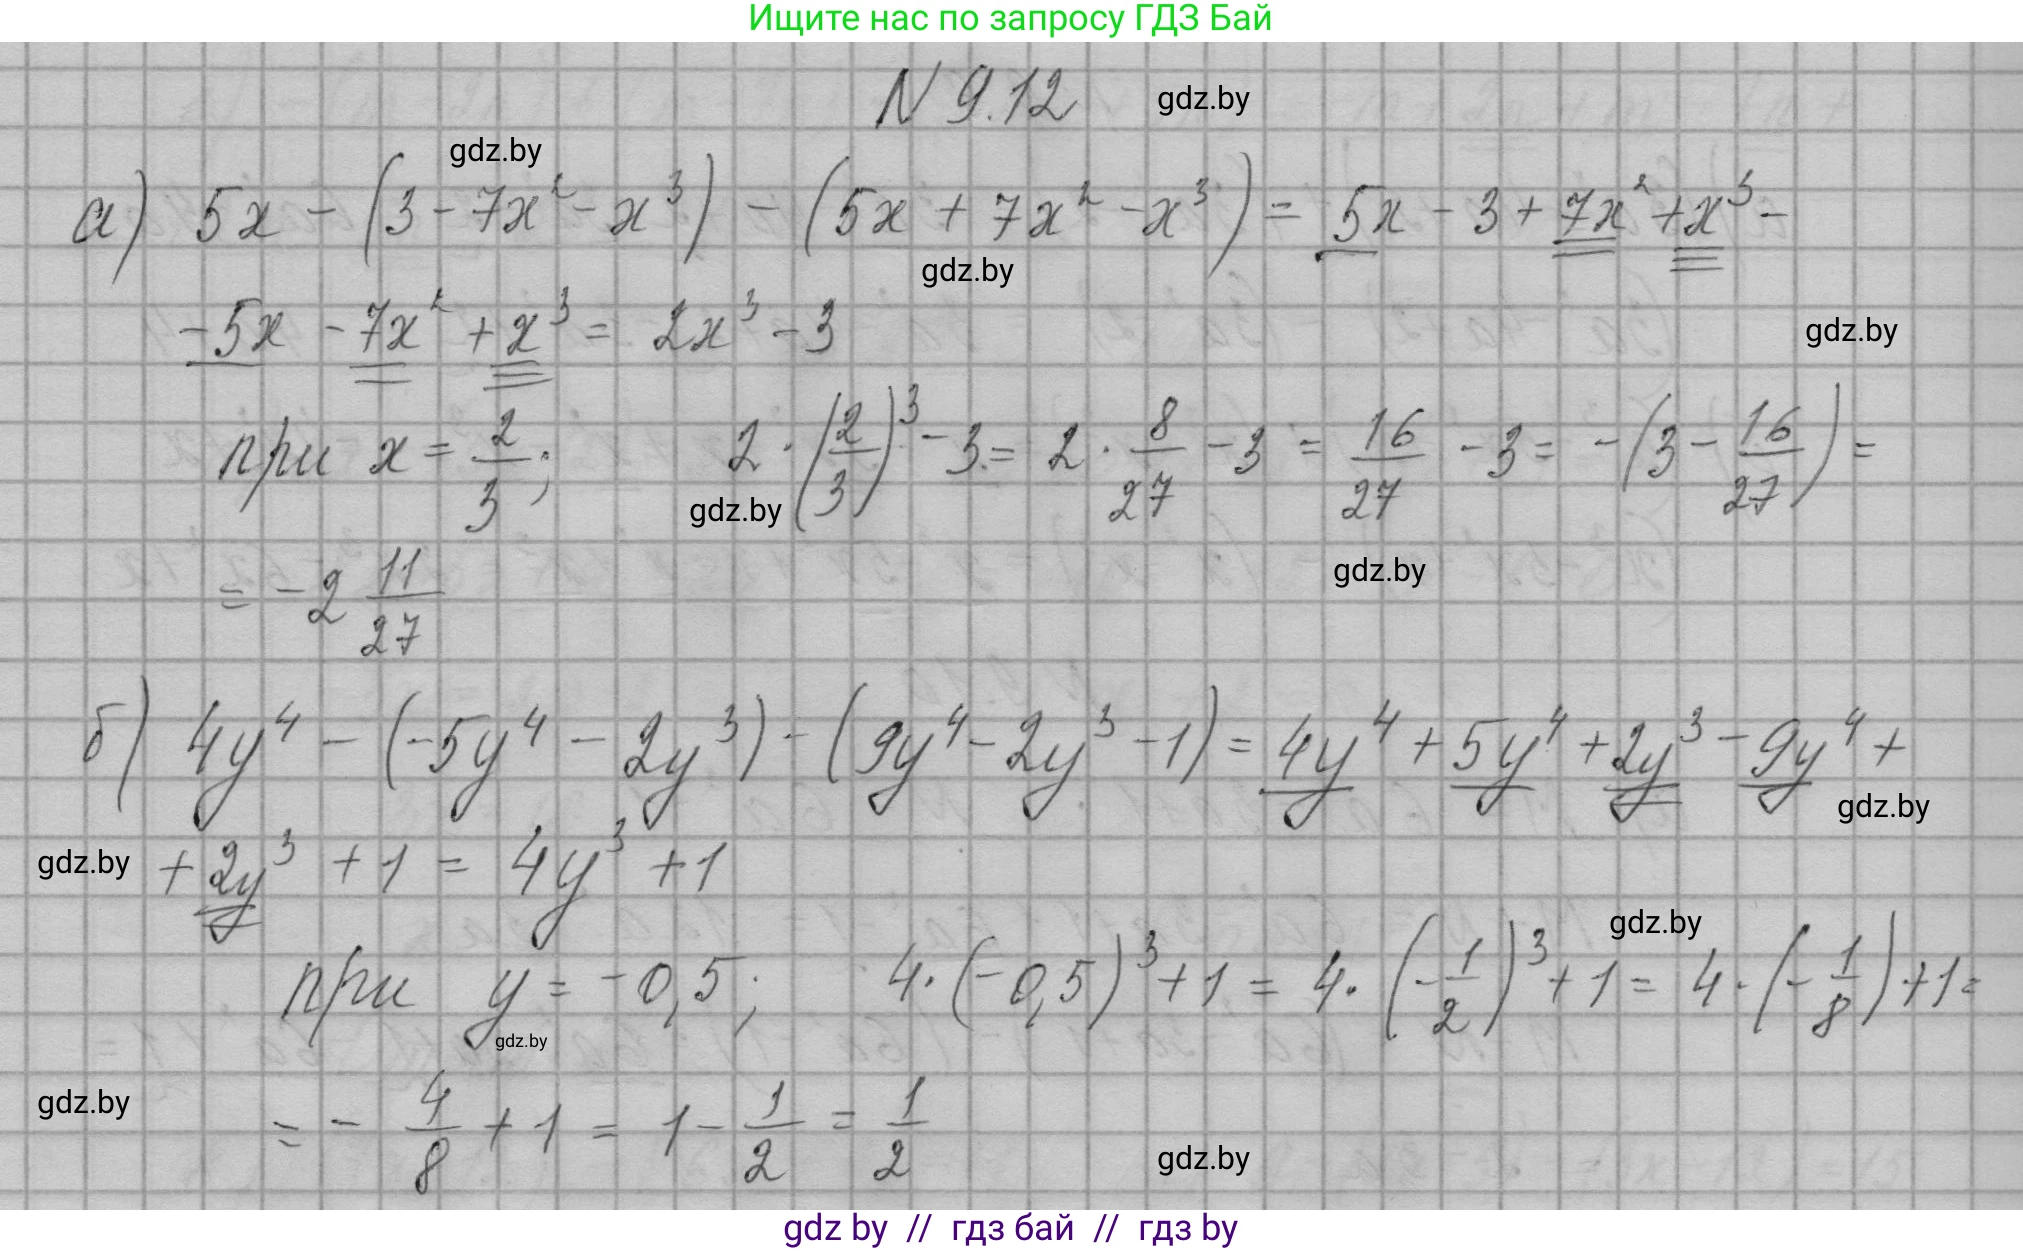 Ищите нас по запросу ГДЗ Бай
N 9.12 gdz.by
gdz.by
а) 5x - (3 - 7x² - x³) - (5x + 7x² - x³) = 5x - 3 + 7x² + x³ -
gdz.by
- 5x - 7x² + x³ = 2x³ - 3
gdz.by
при x = 2/3; 2 · (2/3)³ - 3 = 2 · 8/27 - 3 = 16/27 - 3 = -(3 - 16/27) =
gdz.by
gdz.by
= -2 11/27
б) 4y⁴ - (-5y⁴ - 2y³) - (9y⁴ - 2y³ - 1) = 4y⁴ + 5y⁴ + 2y³ - 9y⁴ +
gdz.by
gdz.by + 2y³ + 1 = 4y³ + 1
gdz.by
при y = -0,5; 4 · (-0,5)³ + 1 = 4 · (-1/2)³ + 1 = 4 · (-1/8) + 1 =
gdz.by
gdz.by
= - 4/8 + 1 = 1 - 1/2 = 1/2
gdz.by
gdz by // гдз бай // гдз by